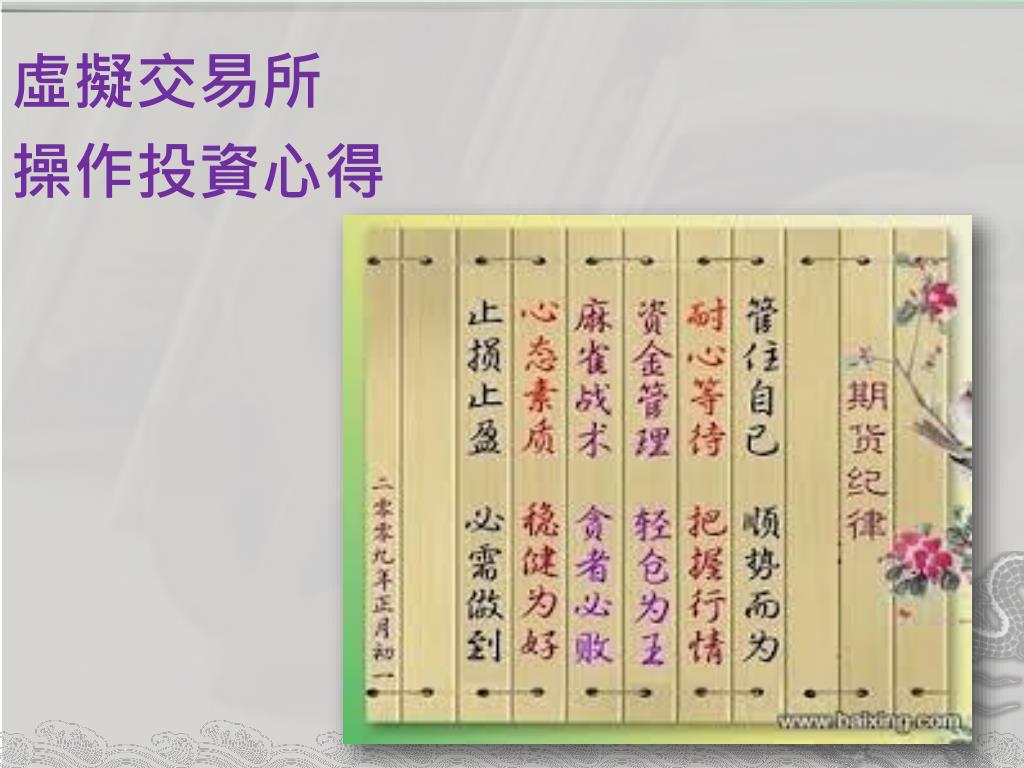 虛擬交易所
操作投資心得
期货纪律
管住自己 顺势而为
耐心等待 把握行情
资金管理 轻仓为王
麻雀战术 贪者必败
心态素质 稳健为好
止损止盈 必需做到
二零零九年正月初一
www.baixing.com